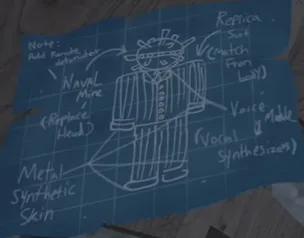 Note:
Add Remote
detonator
NAVAL
Mine
(Replace
Head)
Metal
Synthetic
Skin
Replica
Suit
(Match
From
body)
Voice
Module
(Vocal
Synthesizer)